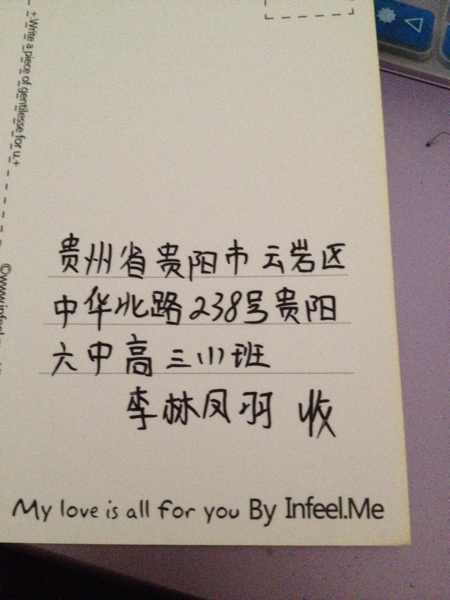 +Write a piece of gentilesse for u.+
贵州省贵阳市云岩区
中华北路238号贵阳
六中高三(1)班
李林凤羽 收
My love is all for you By Infeel.Me